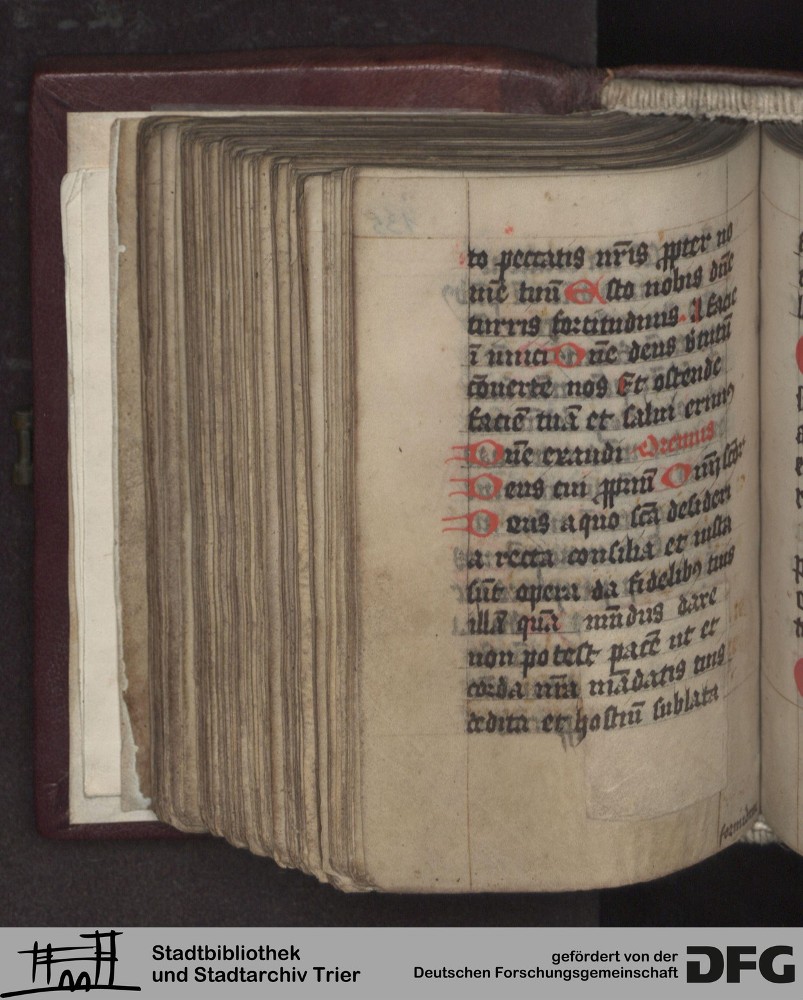 to peccatis nr̄is ꝓpter no
mē tuū Esto nobis dn̄e
turris fortitudinis A facie
ī imici Dn̄e deus v̄tutū
cōuerte nos Et ostende
faciē tuā et salui erimꝰ
Dn̄e exaudi Oremus
Deus cui ꝓpriū
Deus a quo sc̄a desideri
a recta consilia et iusta
sūt opera da fidelibꝯ tuis
illā quā mūdus dare
non potest pacē ut et
corda nr̄a mādatis tuis
dedita et hostiū sublata
formidine
Stadtbibliothek
und Stadtarchiv Trier
gefördert von der
Deutschen Forschungsgemeinschaft
DFG